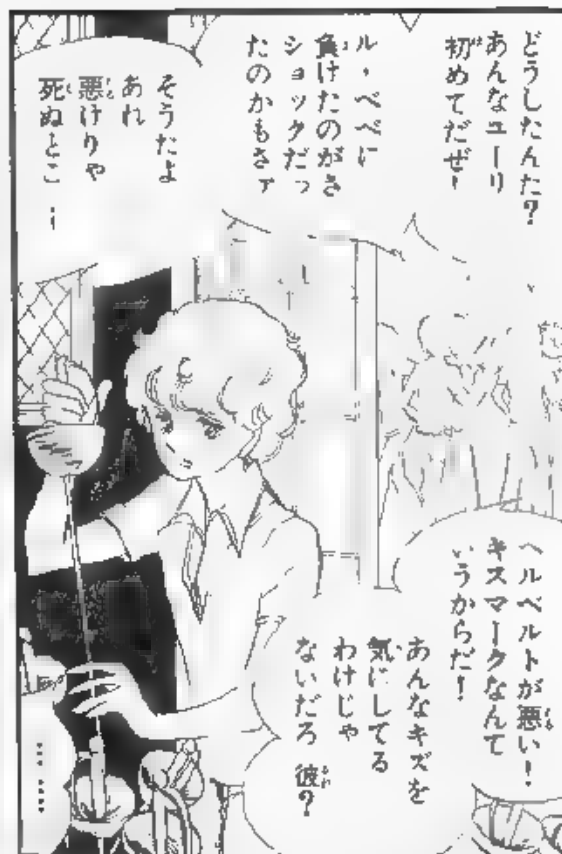 どうしたんだ?
あんなユーリ
初めてだぜ!
ル・ベベに
負けたのがさ
ショックだっ
たのかもさァ
そうだよ
あれ
悪けりゃ
死ぬとこ…
ヘルベルトが悪い!
キスマークなんて
いうからだ!
あんなキズを
気にしてる
わけじゃ
ないだろ 彼?
……